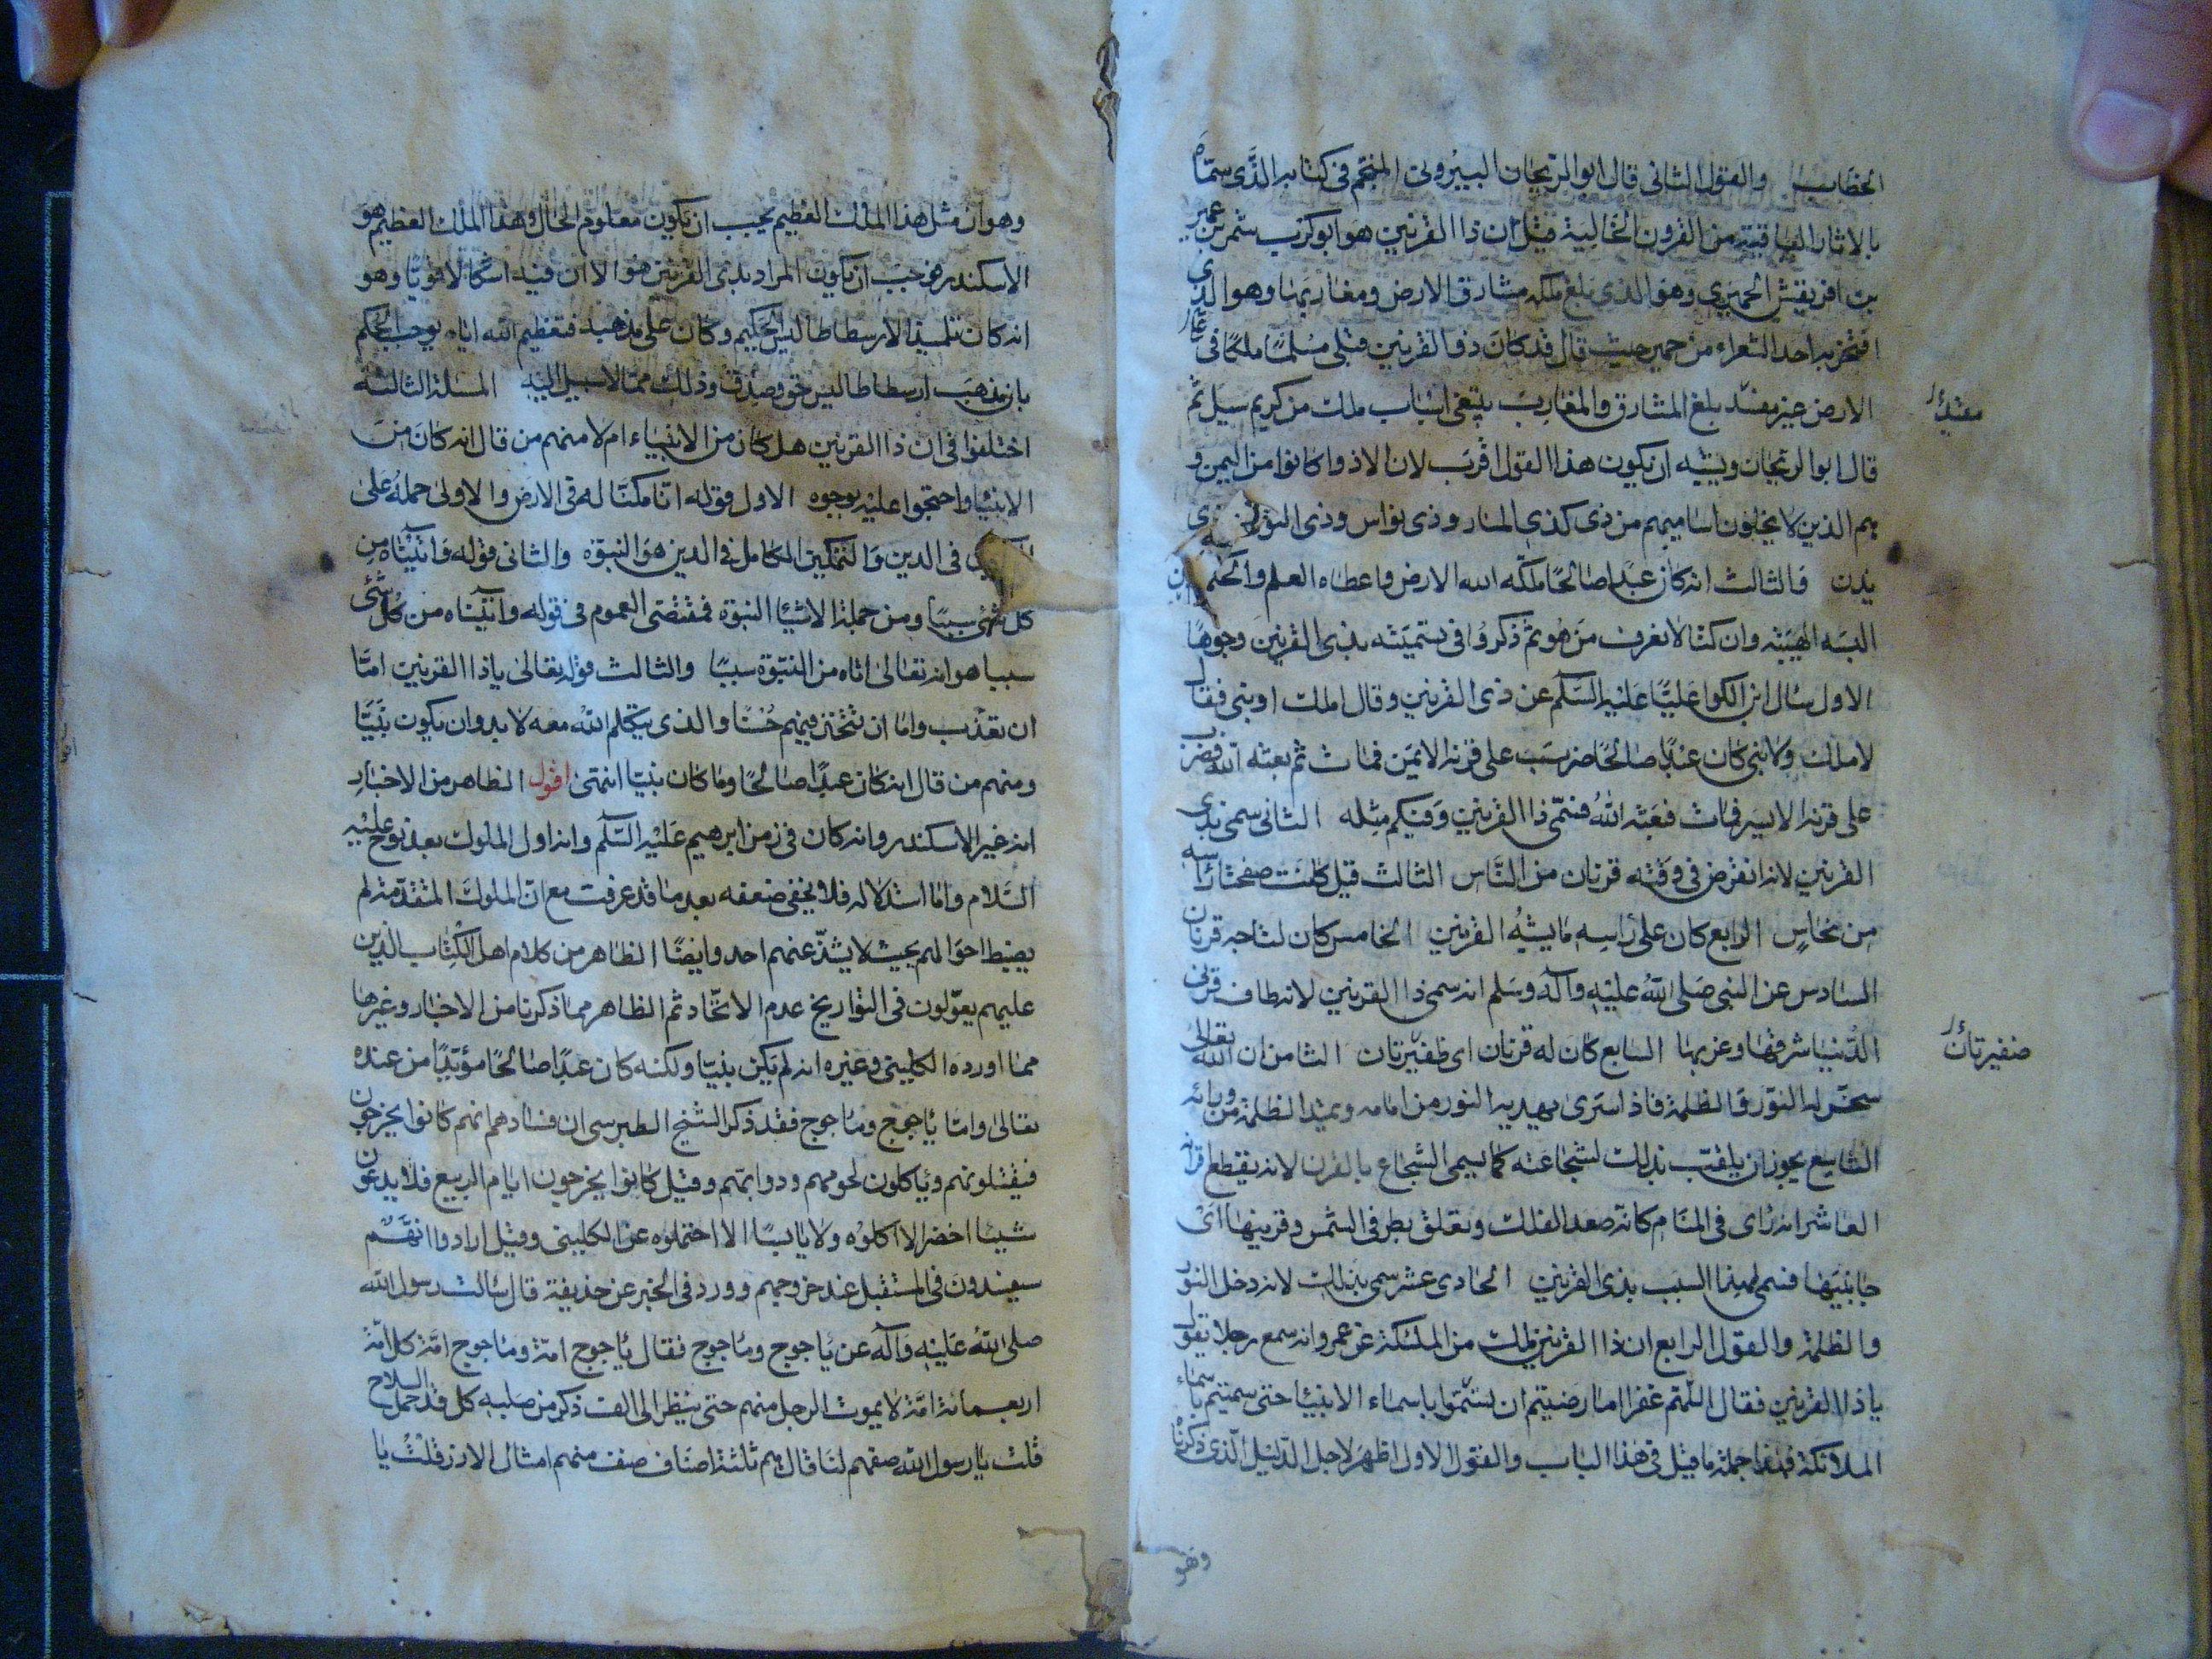 الخطاب والقول الثاني قال ابو الريحان البيروني المنجم في كتابه الذي سماه
بالاثار الباقية من القرون الخالية قيل ان ذا القرنين هو ابو كرب شمر بن عمير
بن افريقش الحميري وهو الذي بلغ ملكه مشارق الارض ومغاربها وهو الذي
افتخر به احد الشعراء من حمير حيث قال قد كان ذو القرنين قبلي مسلما ملكا في
الارض غير مفند بلغ المشارق والمغارب يبتغي اسباب ملك من كريم سيل ثم
مفند
قال ابو الريحان ويشبه ان يكون هذا القول اقرب لان الاذواء كانوا من اليمن و
هم الذين لا يخلون اساميهم من ذي كذي المنار وذي نواس وذي النون وذي
يدن والثالث انه كان عبدا صالحا ملكه الله الارض واعطاه العلم والحكمة
البسه الهيبة وان كنا لا نعرف من هو ثم ذكروا في تسميته بذي القرنين وجوها
الاول سال ابن الكوا عليا عليه السلم عن ذي القرنين وقال املك او نبي فقال
لا ملك ولا نبي كان عبدا صالحا ضرب على قرنه الايمن فمات ثم بعثه الله فضرب
على قرنه الايسر فمات فبعثه الله فسمي ذا القرنين وفيكم مثله الثاني سمي بذي
القرنين لانه انقرض في وقته قرنان من الناس الثالث قيل كانت صفحتا راسه
من نحاس الرابع كان على راسه ما يشبه القرنين الخامس كان لتاجه قرنان
السادس عن النبي صلى الله عليه وآله وسلم انه سمي ذا القرنين لانه طاف قرني
الدنيا شرقها وغربها السابع كان له قرنان اي ظفيرتان الثامن ان الله تعالى
ضفيرتان
سخر له النور والظلمة فاذا سرى يهديه النور من امامه ويمتد الظلمة من ورائه
التاسع يجوز ان يلقب بذلك لشجاعته كما يسمى الشجاع بالقرن لانه يقطع اقرانه
العاشر انه راى في المنام كانه صعد الفلك وتعلق بطرفي الشمس وقرنيها اي
جانبيها فسمي لهذا السبب بذي القرنين الحادي عشر سمي بذلك لانه دخل النور
والظلمة والقول الرابع ان ذا القرنين ملك من الملئكة عن عمر وانه سمع رجلا يقول
يا ذا القرنين فقال اللهم غفرا اما رضيتم ان تسموا باسماء الانبيا حتى سميتم باسماء
الملائكة فهذا جملة ما قيل في هذا الباب والقول الاول اظهر لاجل الدليل الذي ذكرناه
وهو
وهو ان مثل هذا الملك العظيم يجب ان يكون معلوم الحال وهذا الملك العظيم هو
الاسكندر فوجب ان يكون المراد بذي القرنين هو الا ان فيه اشكالا قويا وهو
انه كان تلميذا لارسطاطاليس الحكيم وكان على مذهبه فتعظيم الله اياه يوجب الحكم
بان مذهب ارسطاطاليس حق وصدق وذلك مما لا سبيل اليه المسئلة الثالثة
اختلفوا في ان ذا القرنين هل كان من الانبياء ام لا منهم من قال انه كان من
الانبيا واحتجوا عليه بوجوه الاول قوله انا مكنا له في الارض والاولى حمله على
في الدين والتمكين الكامل في الدين هو النبوة والثاني قوله وآتيناه من
كل شيء سببا ومن جملة الاشيا النبوة فمقتضى العموم في قوله وآتيناه من كل شيء
سببا هو انه تعالى اتاه من النبوة سببا والثالث قوله تعالى يا ذا القرنين اما
ان تعذب واما ان تتخذ فيهم حسنا والذي يتكلم الله معه لا بد وان يكون نبيا
ومنهم من قال انه كان عبدا صالحا وما كان نبيا انتهى اقول الظاهر من الاخبار
انه غير الاسكندر وانه كان في زمن ابرهيم عليه السلم وانه اول الملوك بعد نوح عليه
السلام واما استدلاله فلا يخفى ضعفه بعد ما قد عرفت مع ان الملوك المتقدمة لم
يضبط احوالهم بحيث لا يشذ عنهم احد وايضا الظاهر من كلام اهل الكتاب الذين
عليهم يعولون في التواريخ عدم الاتحاد ثم الظاهر مما ذكرنا من الاخبار وغيرها
مما اورده الكليني وغيره انه لم يكن نبيا ولكنه كان عبدا صالحا مؤيدا من عنده
تعالى واما ياجوج وماجوج فقد ذكر الشيخ الطبرسي ان فسادهم انهم كانوا يخرجون
فيقتلونهم وياكلون لحومهم ودوابهم وقيل كانوا يخرجون ايام الربيع فلا يدعون
شيئا اخضر الا اكلوه ولا يابسا الا احتملوه عن الكليني وقيل ارادوا انهم
سيفسدون في المستقبل عند خروجهم وورد في الخبر عن حذيفة قال سالت رسول الله
صلى الله عليه وآله عن ياجوج وماجوج فقال ياجوج امة وماجوج امة كل امة
اربعمائة امة لا يموت الرجل منهم حتى ينظر الى الف ذكر من صلبه كل قد حمل السلاح
قلت يا رسول الله صفهم لنا قال هم ثلثة اصناف صنف منهم امثال الارز قلت يا